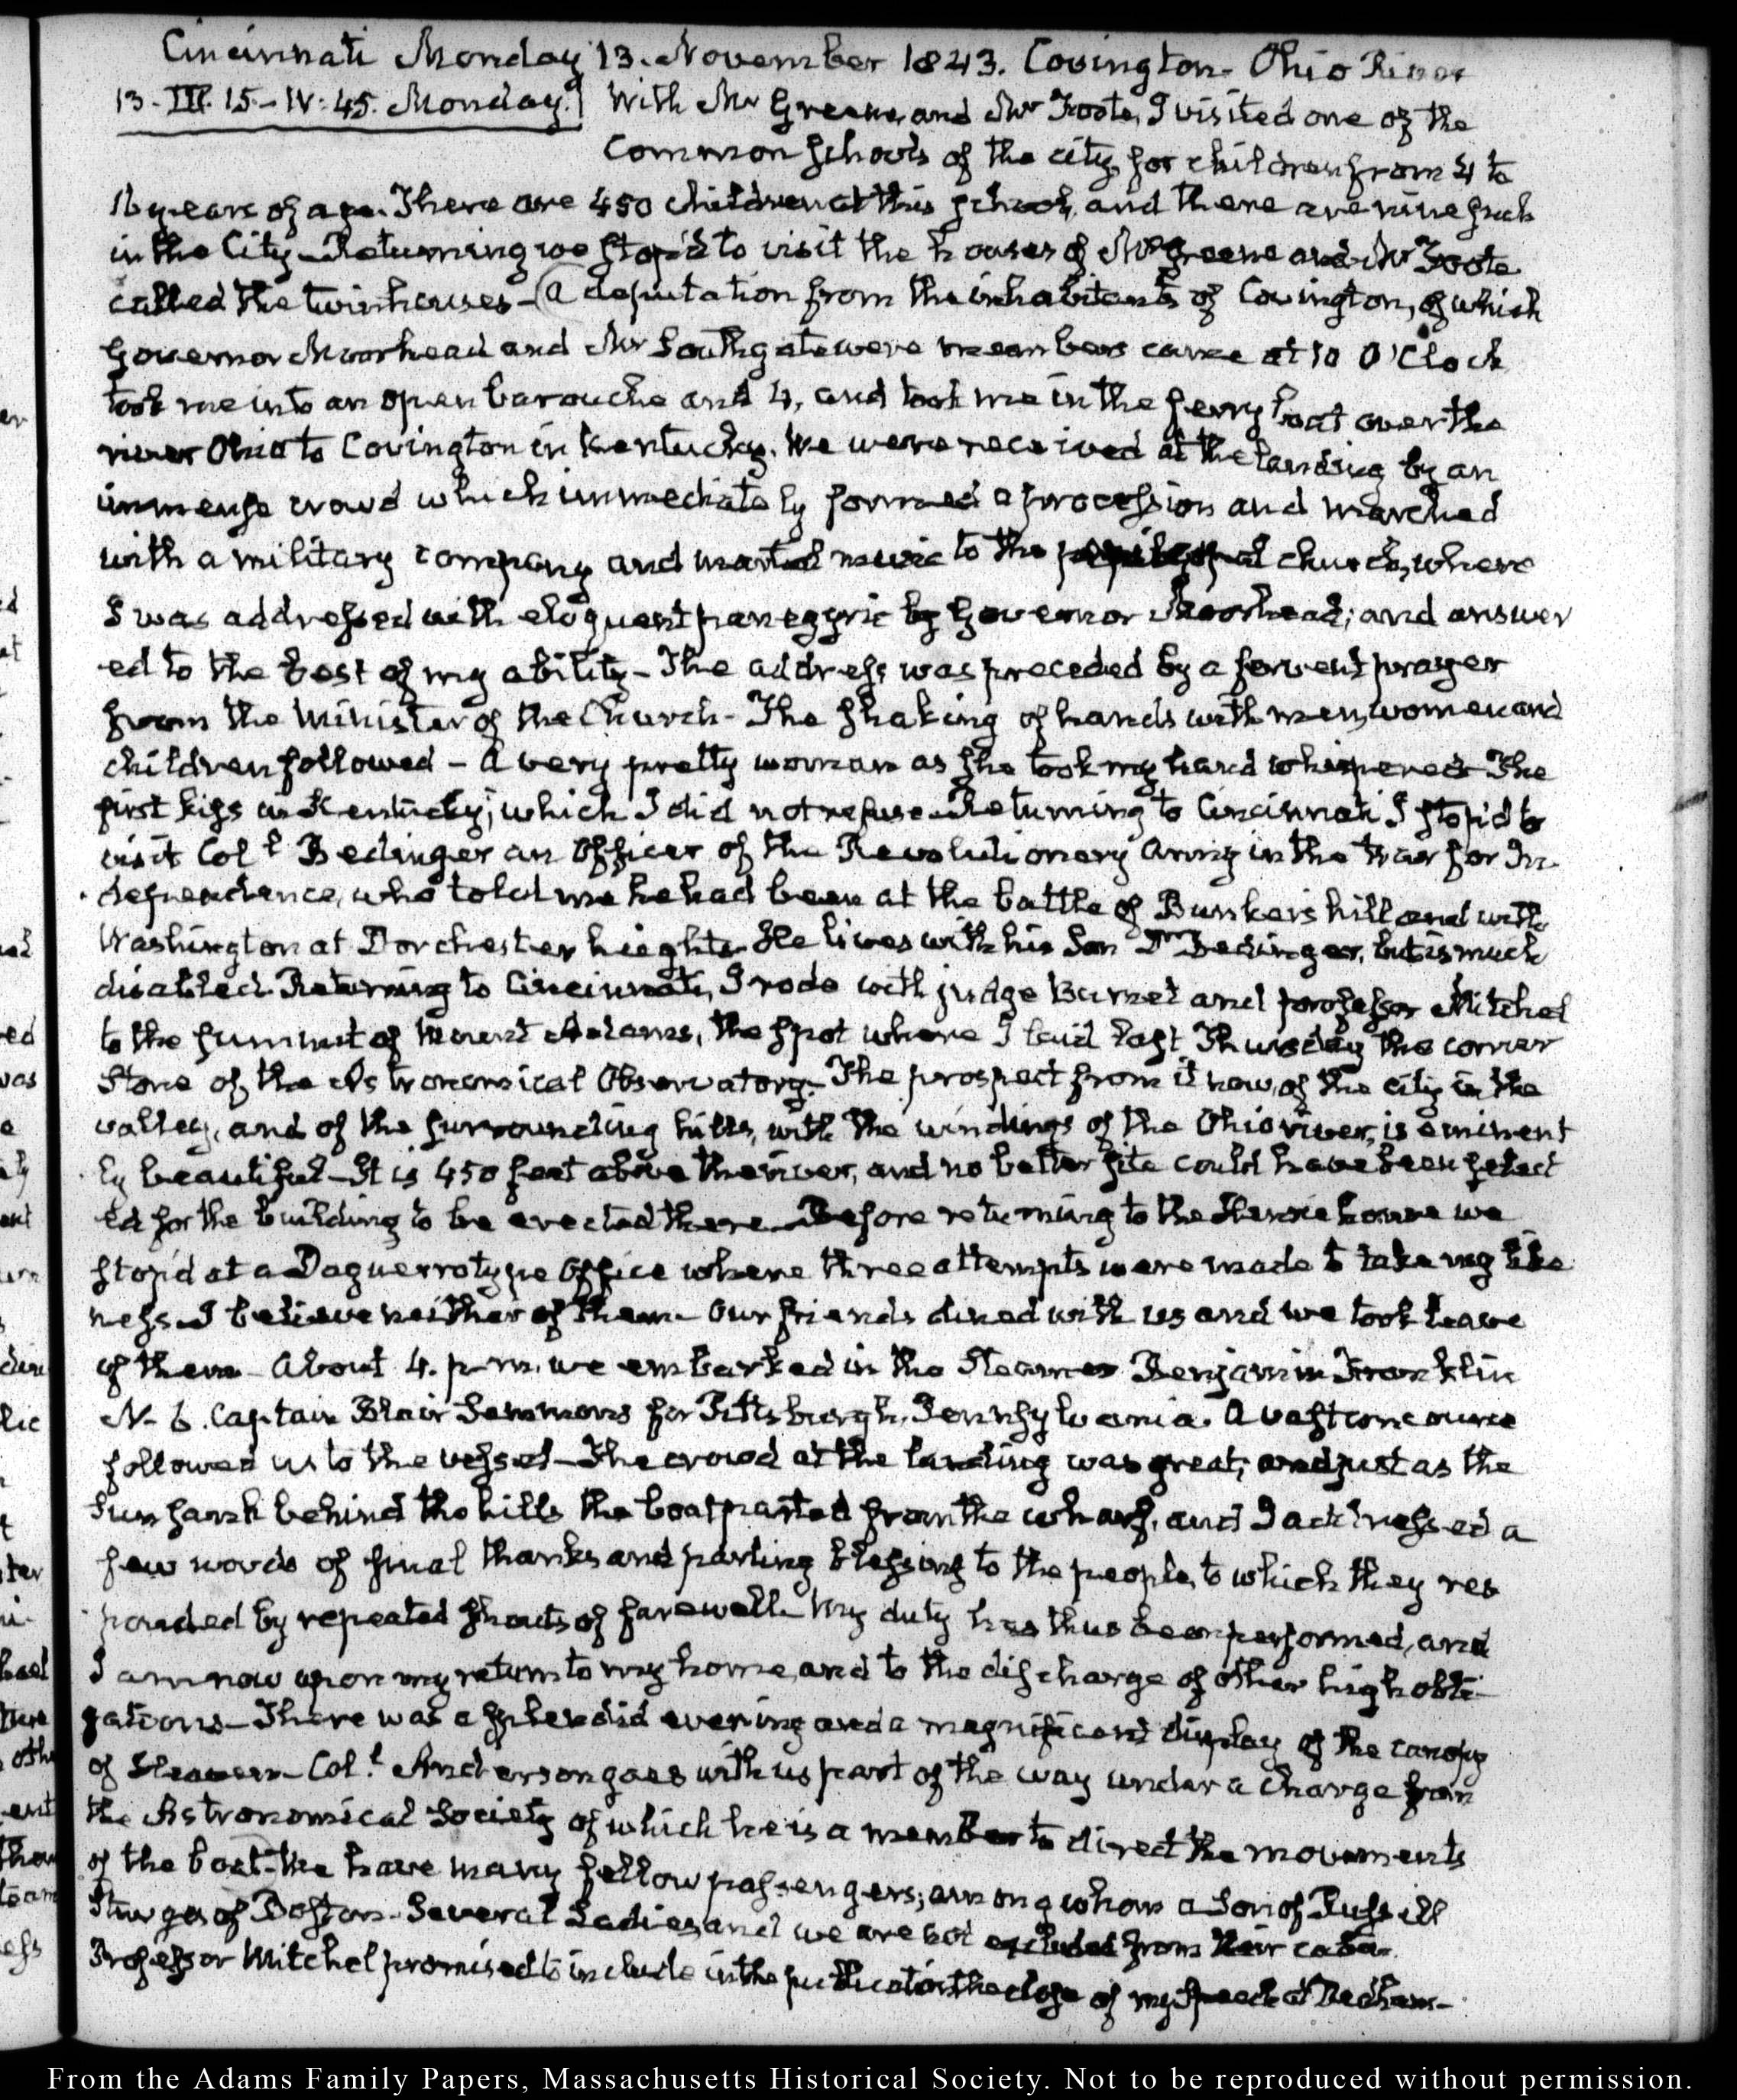 Cincinnati Monday 13. November 1843. Covington - Ohio River
13. III. 15 - IV. 45. Monday. With Mr Greene, and Mr Foote, I visited one of the
Common Schools of the city, for children from 4 to
16 years of age. There are 450 children at this school, and there are nine such
in the City - Returning we stop'd to visit the houses of Mr Greene and Mr Foote
called the twin houses - A deputation from the inhabitants of Covington, of which
Governor Moorhead and Mr Southgate were members came at 10 O'Clock
took me into an open barouche and 4, and took me in the ferry boat over the
river Ohio to Covington in Kentucky. We were received at the landing by an
immense crowd which immediately formed a procession and marched
with a military company and martial music to the church, where
I was addressed with eloquent panegyric by Governor Moorhead; and answer
ed to the best of my ability - The address was preceded by a fervent prayer
from the Minister of the Church - The shaking of hands with men, women and
children followed - A very pretty woman as she took my hand whispered The
first kiss in Kentucky; which I did not refuse - Returning to Cincinnati I stop'd to
visit Coll Bedinger an Officer of the Revolutionary Army in the War for In-
dependence, who told me he had been at the battle of Bunkers hill and with
Washington at Dorchester heights - He lives with his Son Dr Bedinger, but is much
disabled. Returning to Cincinnati, I rode with judge Burnet and professor Mitchel
to the summit of Mount Adams, the spot where I laid last Thursday the corner
stone of the Astronomical Observatory - The prospect from it now, of the city in the
valley, and of the surrounding hills, with the windings of the Ohio river, is eminent
ly beautiful - It is 450 feet above the river, and no better site could have been select
ed for the building to be erected there - Before returning to the Henrie house we
stop'd at a Daguerrotype Office where three attempts were made to take my like
ness. I believe neither of them - Our friends dined with us and we took leave
of them - About 4. p.m. we embarked in the Steamer Benjamin Franklin
N. 6. Captain Blair Summons for Pittsburgh, Pennsylvania. A vast concourse
followed us to the vessel - The crowd at the landing was great; and just as the
Sun sank behind the hills the boat parted from the wharf, and I addressed a
few words of final thanks and parting blessing to the people, to which they res
ponded by repeated shouts of farewell - My duty has thus been performed, and
I am now upon my return to my home, and to the discharge of other high obli-
gations - There was a splendid evening and a magnificent display of the canopy
of Heaven - Coll Anderson goes with us part of the way under a charge from
the Astronomical Society of which he is a member to direct the movements
of the boat - We have many fellow passengers; among whom a Son of Russell
Sturges of Boston - Several Ladies and we are not excluded from their cabin.
Professor Mitchel promised to include in the publication the close of my speech at Dedham -
From the Adams Family Papers, Massachusetts Historical Society. Not to be reproduced without permission.